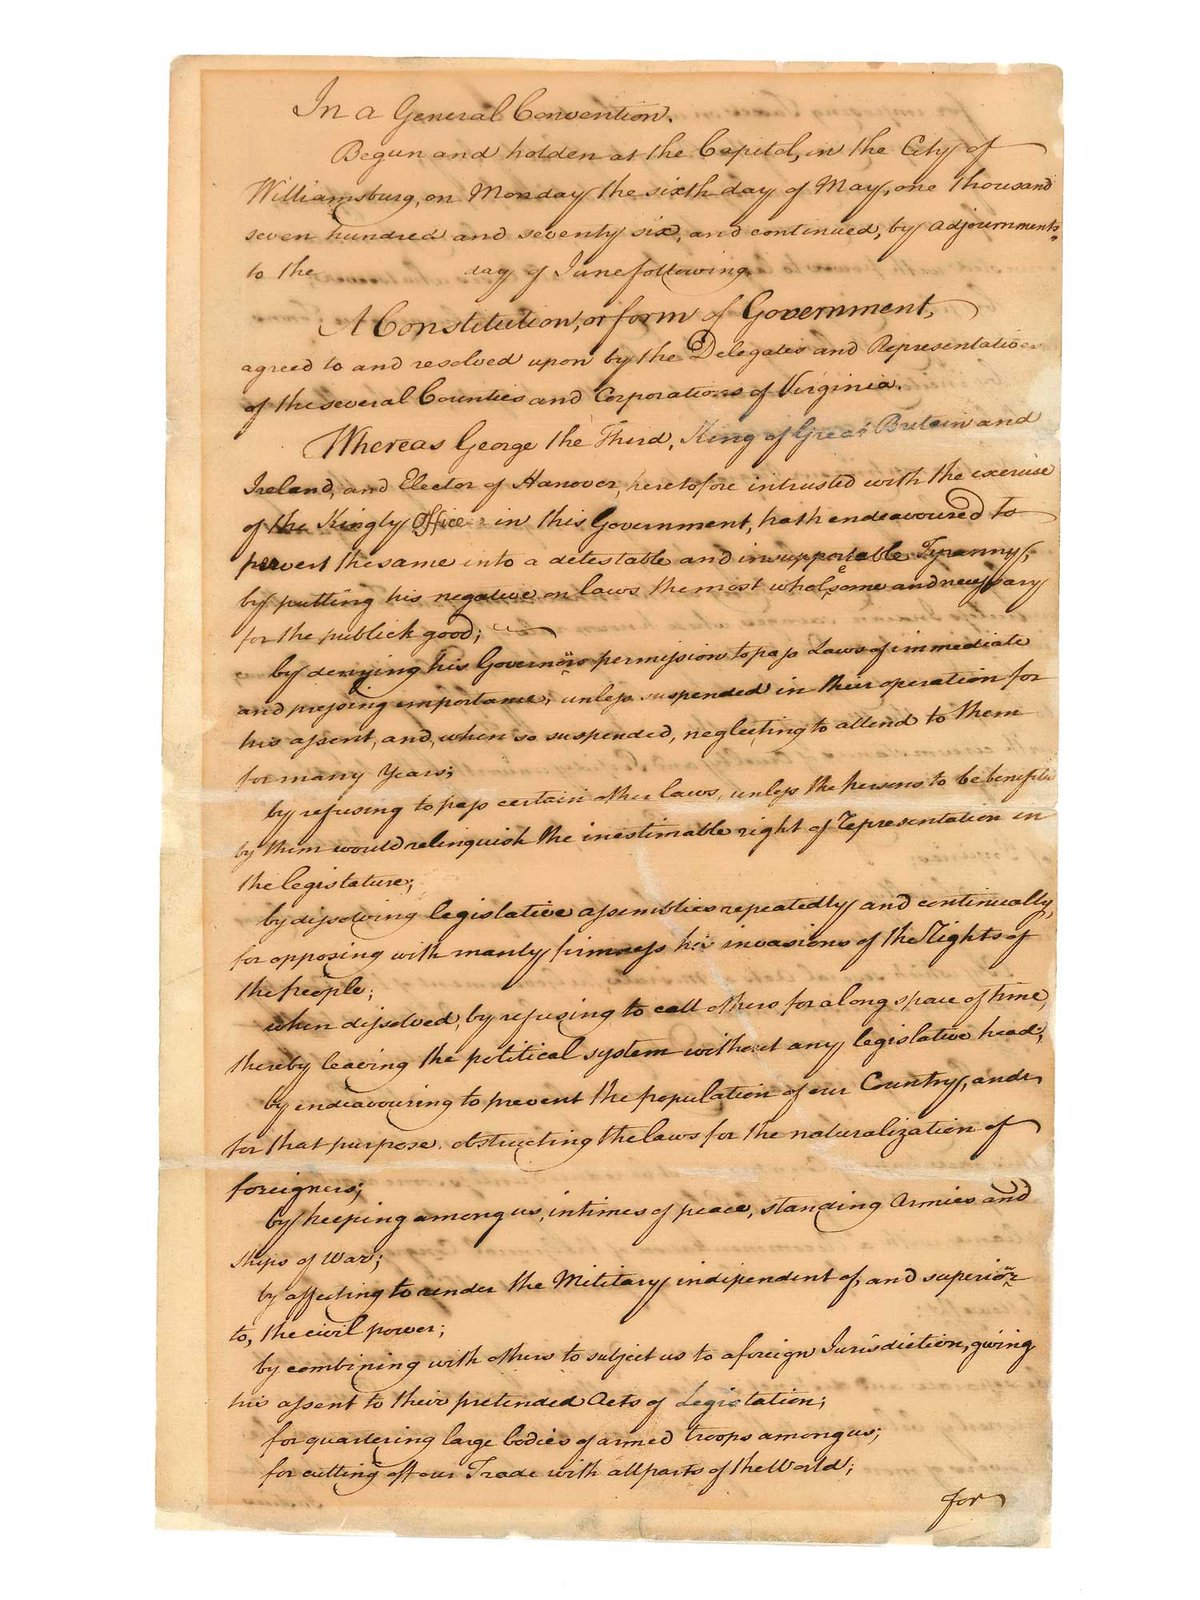 In a General Convention.
Begun and holden at the Capitol, in the City of
Williamsburg, on Monday the sixth day of May, one thousand
seven hundred and seventy six, and continued, by adjournments
to the day of June following.
A Constitution, or form of Government,
agreed to and resolved upon by the Delegates and Representatives
of the several Counties and Corporations of Virginia.
Whereas George the Third, King of Great Britain and
Ireland, and Elector of Hanover, heretofore intrusted with the exercise
of the Kingly Office in this Government, hath endeavoured to
pervert the same into a detestable and insupportable Tyranny;
by putting his negative on laws the most wholesome and necessary
for the publick good;
by denying his Governors permission to pass Laws of immediate
and pressing importance, unless suspended in their operation for
his assent, and, when so suspended, neglecting to attend to them
for many Years;
by refusing to pass certain other laws, unless the persons to be benefited
by them would relinquish the inestimable right of representation in
the legislature;
by dissolving legislative assemblies repeatedly and continually,
for opposing with manly firmness his invasions of the Rights of
the people;
when dissolved, by refusing to call others for a long space of time,
thereby leaving the political system without any legislative head;
by endeavouring to prevent the population of our Country, and
for that purpose, obstructing the laws for the naturalization of
foreigners;
by keeping among us, in times of peace, standing Armies and
ships of War;
by affecting to render the Military independent of, and superior
to, the civil power;
by combining with others to subject us to a foreign Jurisdiction, giving
his assent to their pretended Acts of Legislation;
for quartering large bodies of armed troops among us;
for cutting off our Trade with all parts of the World;
for